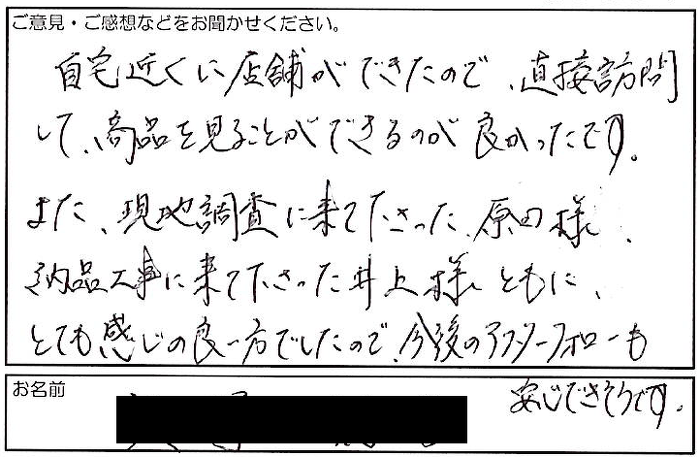 ご意見・ご感想などをお聞かせください。
自宅近くに店舗ができたので、直接訪問
して、商品を見ることができるのが良かったです。
また、現地調査に来て下さった、原田様、
納品工事に来て下さった井上様ともに、
とても感じの良い方でしたので、今後のアフターフォローも
安心できそうです。
お名前